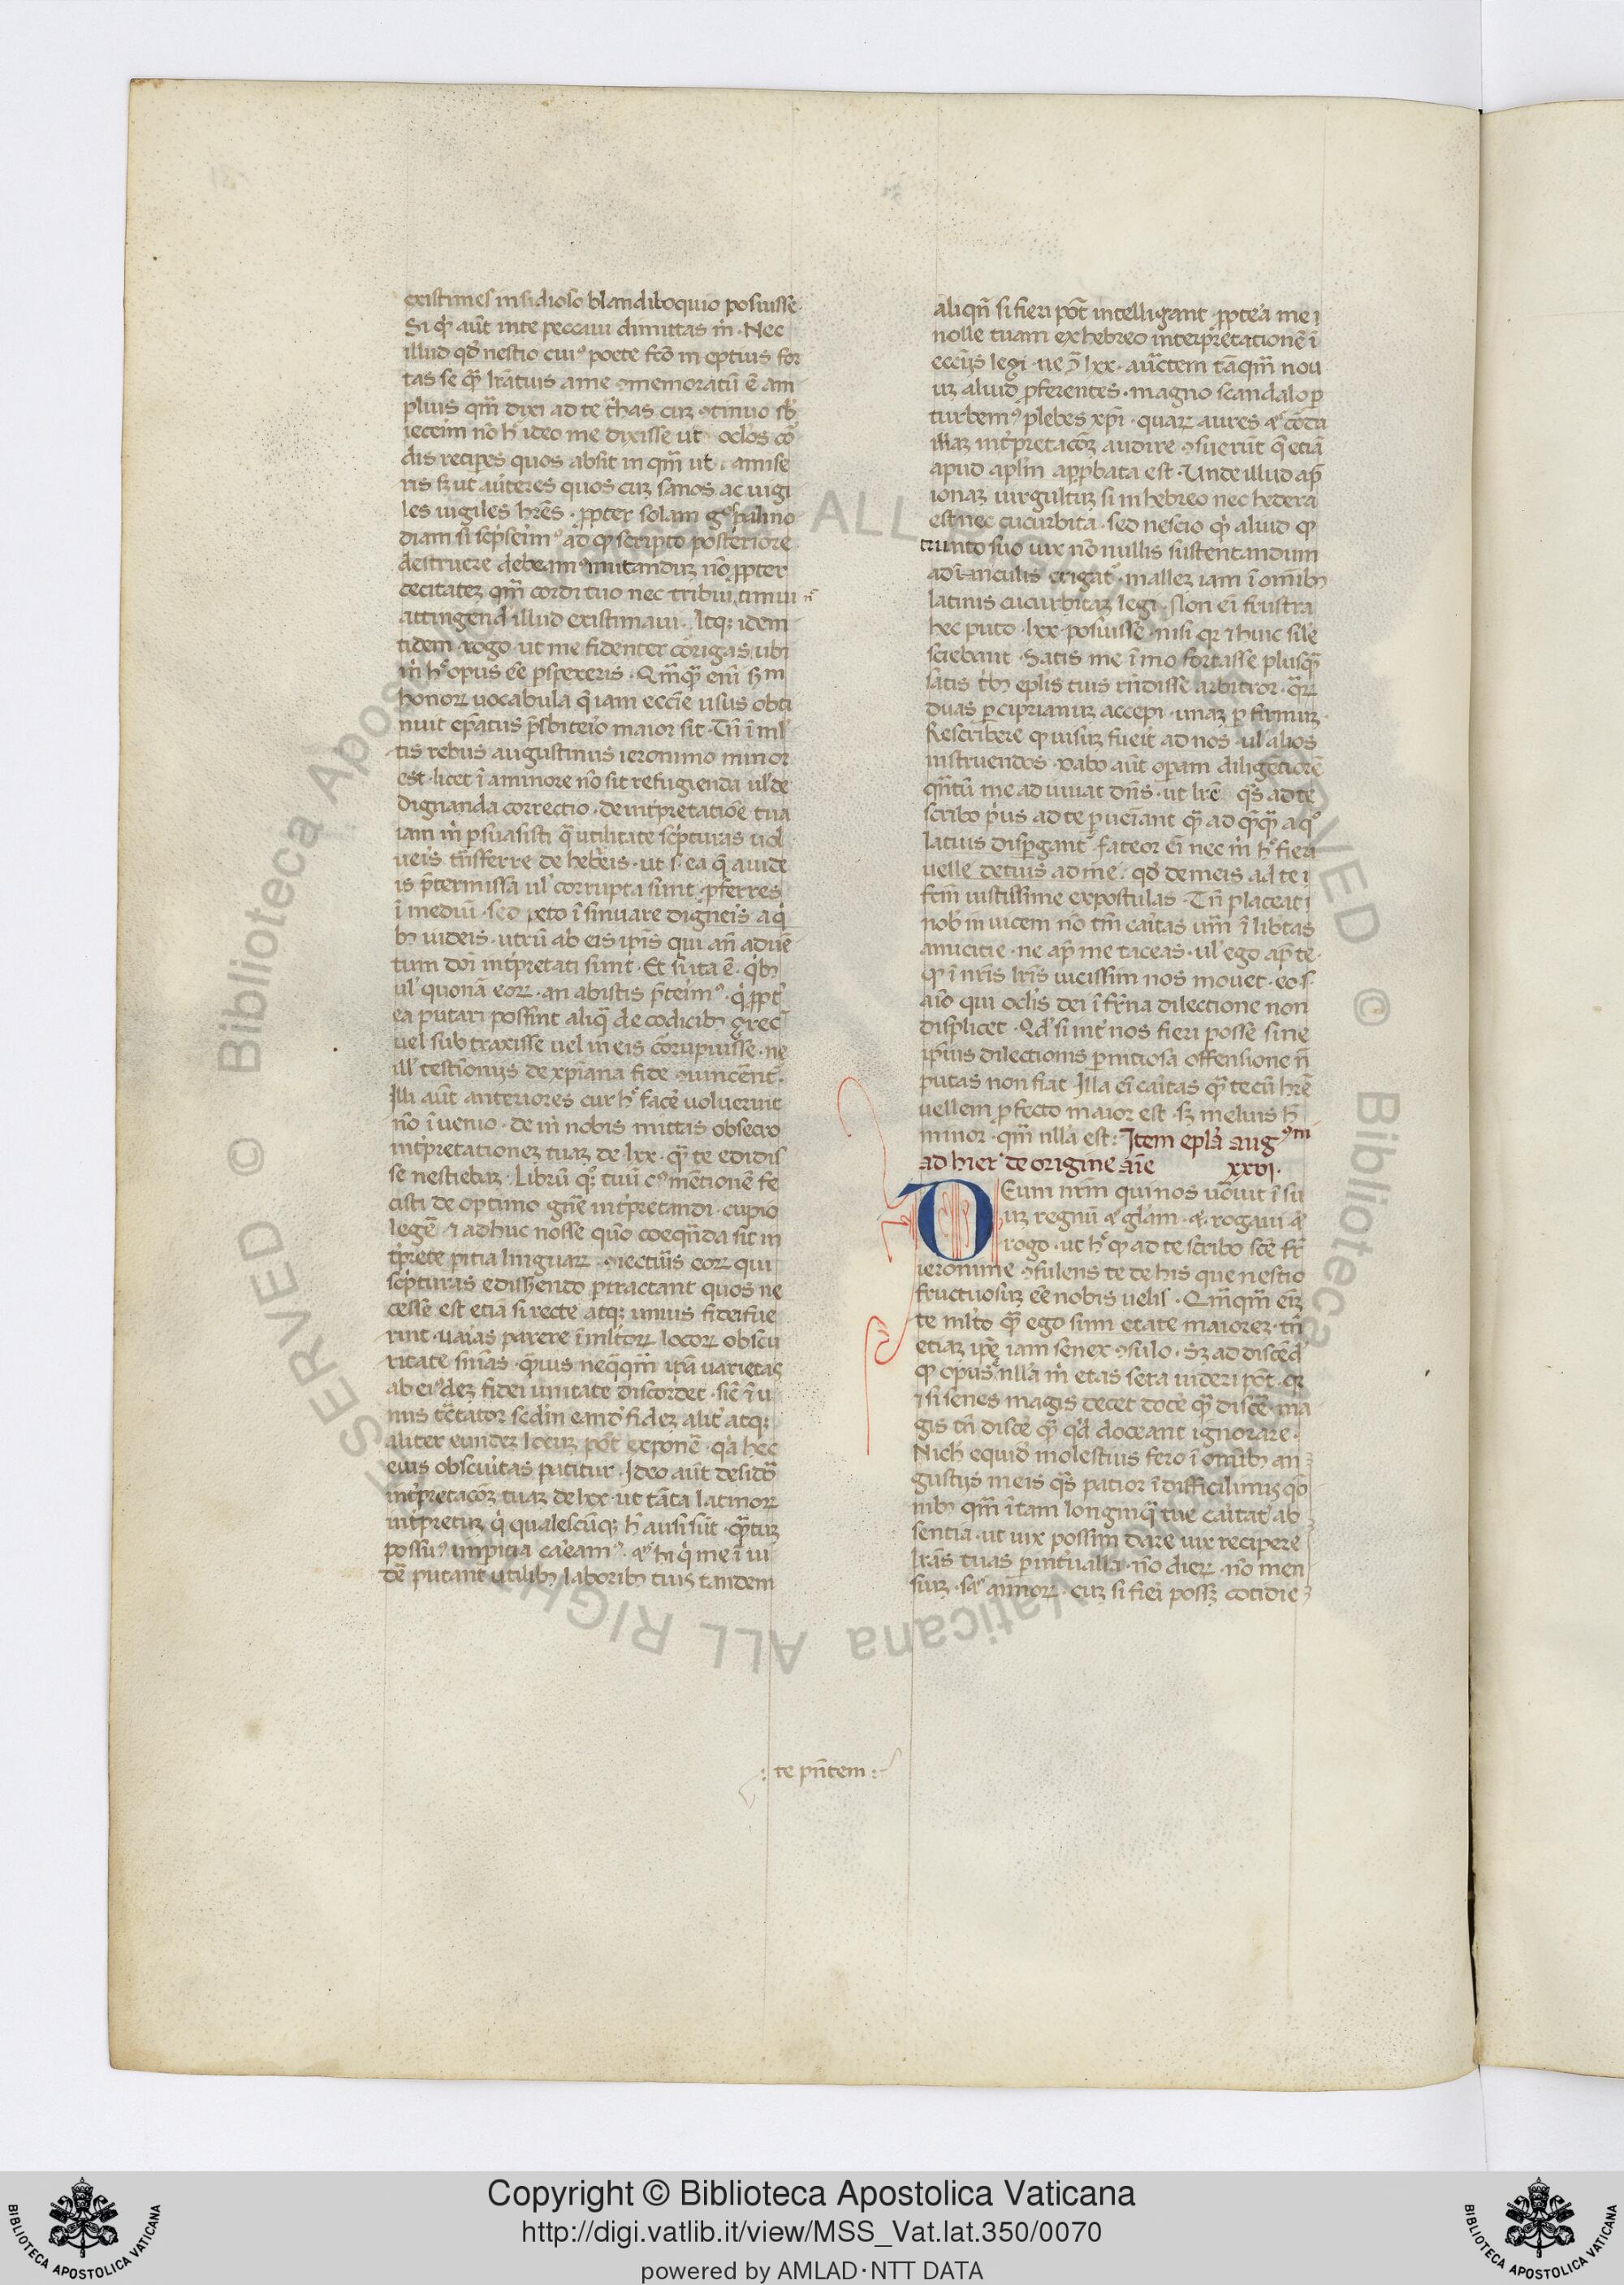 existimes insidioso blandiloquio posuisse.
Si qͥ aūt in te peccaui dimittas m̄. Nec
illud qd̓ nescio cuiꝰ poete fcō ineptius for
tas se qͣ lr̄atius a me ꝯmemoratū ē am
plius qm̄ dixi ad te t̄has cuꝫ ꝯtinuo sb̓
iecerim nō h̓ ideo me dixisse ut oclōs cō
dis recipes quos absit in qm̄ ut amise
ris sꝫ ut aūteres quos cuꝫ sanos ac uigi
les uigiles
diam si sc̓pserimꝰ ad qͦ scripto posteriore
destruere debeamꝰ imitanduꝫ nō ꝓpter
cecitateꝫ qm̄ cordi tuo nec tribui timui
attingend̓ illud existimaui. Atqꝫ idem
tidem rogo ut me fidenter corigas ubi
m̄ hͦ opus eē ꝑspexeris. Qm̄qͣ enī sm̄
honoꝝ uocabula q̄ iam eccīe usus obti
nuit ep̄atus pr̄sbiterio maior sit. Tn̄ ī ml̓
tis rebus augustinus ieronimo minor
est. licet ī a minore nō sit refugienda ul̓ de
dignanda correctio. de int̓pretatiōe tua
iam m̄ ꝑsuasisti q̄ utilitate sc̓pturas uol
ueris tn̄sferre de hebreis. ut s. ea q̄ a iude
is p̄termissa ul̓ corrupta sūnt. ꝓferres
ī mediū. sed peto īsinuare digneris a qͥ
bꝫ iudeis. utrū ab eis ip̄is qui an̄ aduē
tum dn̄i int̓pretati sunt. Et si ita ē. qͥbꝫ
ul̓ quonā eoꝝ. an ab istis p̄terimꝰ. qͥ ꝓpt̓
ea putari possint aliqͣ de codicibꝫ grec̓
uel subtraxisse uel in eis corupuisse. ne
ill̓ testīonijs de xp̄iana fide ꝯuincent̄.
Illi aūt anteriores cur hͦ facē uoluerint
nō īuenio. dein̄ nobis mittas obsecro
int̓pretationeꝫ tuaꝫ de lxx. qͣ te edidis
se nesciebaꝫ. Librū qͦꝫ tuū cꝰ mētionē fe
cisti de optimo gn̄e int̓pretandi. cupio
legē. ⁊ adhuc nosse qūo coeqn̄da sit in
t̓prete ꝑitia linguaꝝ. ꝯiecturis eoꝝ qui
sc̓pturas edisserendo ꝑtractant quos ne
cesse est etiā si recte atqꝫ unius fidei fue
rint. uarias parere ī mltoꝝ locoꝝ obscu
ritate sn̄ias. qͣuis neqͣqm̄ ip̄a uarietas
ab eiꝰdeꝫ fidei unitate discordet. sic̄ ī u
nus tractator sed̓m eand̓ fideꝫ alit̓ atqꝫ
aliter eundeꝫ locuꝫ pōt exponē. qͥa hec
eius obscuritas patitur. Ideo aūt desidō
int̓pretacōeꝫ tuaꝫ de lxx. ut tāta latinoꝝ
int̓pretuꝫ qͥ qualescūqꝫ h̓ ausi sūt. qͣtuꝫ
possuꝰ impitia careamꝰ. ⁊ hi qͥ me ī ui
dē putant utilibꝫ laboribꝫ tuis tandem
aliqn̄ si fieri pōt intelligant. ꝓpt̓ea me ı
nolle tuam ex hebreo interpretationē ī
ecc̄ijs legi. ne ꝯ̄ lxx. auctem tāqm̄ nou
uꝫ aliud ꝓferentes. magno scandalo ꝑ
turbemꝰ plebes xp̄i. quaꝝ aures ⁊ corda
illaꝫ int̓pretacōeꝫ audire ꝯsuerūt q̄ etiā
apud aplīm apꝓbata est. Unde illud ap̄
ionaꝫ uirgultuꝫ si in hebreo nec hedera
est nec cucurbita. sed nescio qͥ aliud qͦ
trunco suo uix nō nullis sustentandum
admīnculis erigat̄. malleꝫ iam ī omībꝫ
latinis cucurbitaꝫ legi. Non eī frustra
hec puto .lxx. posuisse. nisi qꝛ ⁊ huic sile
sciebant. Satis me īmo fortasse plusqͣ
satis t̓bꝫ epl̄is tuis rn̄disse arbitror. qꝛꝝ
duas ꝑ ciprianuꝫ accepi. unaꝫ ꝑ firmuꝫ.
Rescribere qͦ uisuꝫ fuerit ad nos. ul̓ alios
instruendos. Dabo aūt operam diligētiorē
qn̄tū me adiuuat dn̄s. ut lrē qͣs ad te
scribo p̓us ad te ꝑueniant qͣ ad qͣqͣ a qͦ
latius dispergant̄. fateor eī nec m̄ hͦ fieri
uelle de tuis ad me. qd̓ de meis ad te ı
fctm̄ iustissime expostulas. Tn̄ placeat ı
nob̓ inuicem nō tm̄ caritas um̄ ī libtas
amicitie. ne ap̄ me taceas. ul̓ ego ap̄ te.
qͦ ī nr̄is lr̄is uicissim nos mouet. eo s.
aīo qui oclīs dei ī fr̄na dilectione non
displicet. Qd̓ si int̓ nos fieri posse sine
ip̄ius dilectionis ꝑniciosa offensione n̄
putas non fiat. Illa eī caritas qͣ tecū hrē
uellem ꝓfecto maior est. sꝫ melius h̄
minor. qm̄ nlla est: Item epl̄a augꝰm
ad hier̓ de origine aīe xxvi.
DEum nrm̄ qui nos uocauit ī su
uꝫ regnū ⁊ glāam. ⁊ rogaui ⁊
rogo. ut hͦ qͦ ad te scribo scē fr̄
ieronime ꝯsulens te de his que nescio
fructuosuꝫ eē nobis uelis. Qm̄qm̄ eīꝫ
te mlto qͣ ego sim etate maioreꝫ. tn̄
etiaꝫ ip̄e iam senex ꝯsulo. Sꝫ ad discēd̓
qͦ opus nlla m̄ etas sera uideri pōt. qꝛ
⁊ si senes magis decet docē qͣ discē. ma
gis tn̄ discē qͣ qd̓ doceant ignorare.
Nich̓ equid̓ molestius fero ī omībꝫ an
gustijs meis qͣs patior ī difficilimis qō
nibꝫ qm̄ ī tam longinqͣ tue caritat̓ ab
sentia. ut uix possim dare uix recipere
lrās tuas ꝑ int̓ualla. nō dieꝝ. nō men
suꝫ. sꝫ annoꝝ. cuꝫ si fieri possꝫ cotidie
: te pn̄tem :
Copyright © Biblioteca Apostolica Vaticana
http://digi.vatlib.it/view/MSS_Vat.lat.350/0070
powered by AMLAD·NTT DATA